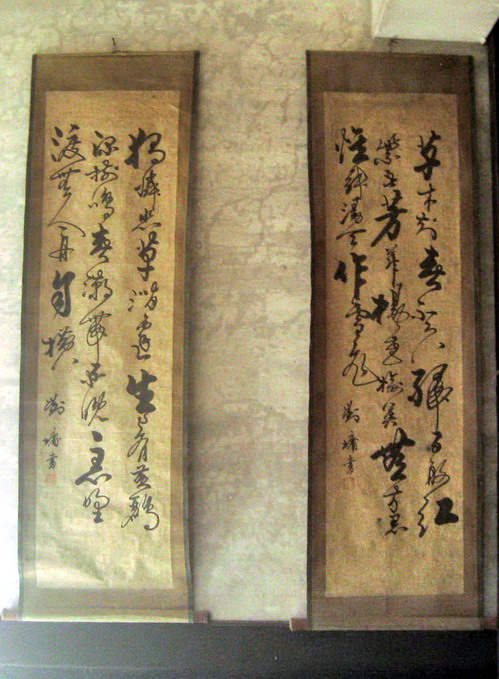 草木知春不久歸百般紅
紫鬥芳菲楊花榆莢無才思
惟解漫天作雪飛
劉墉書
獨憐幽草澗邊生上有黃鸝
深樹鳴春潮帶雨晚來急野
渡無人舟自橫
劉墉書